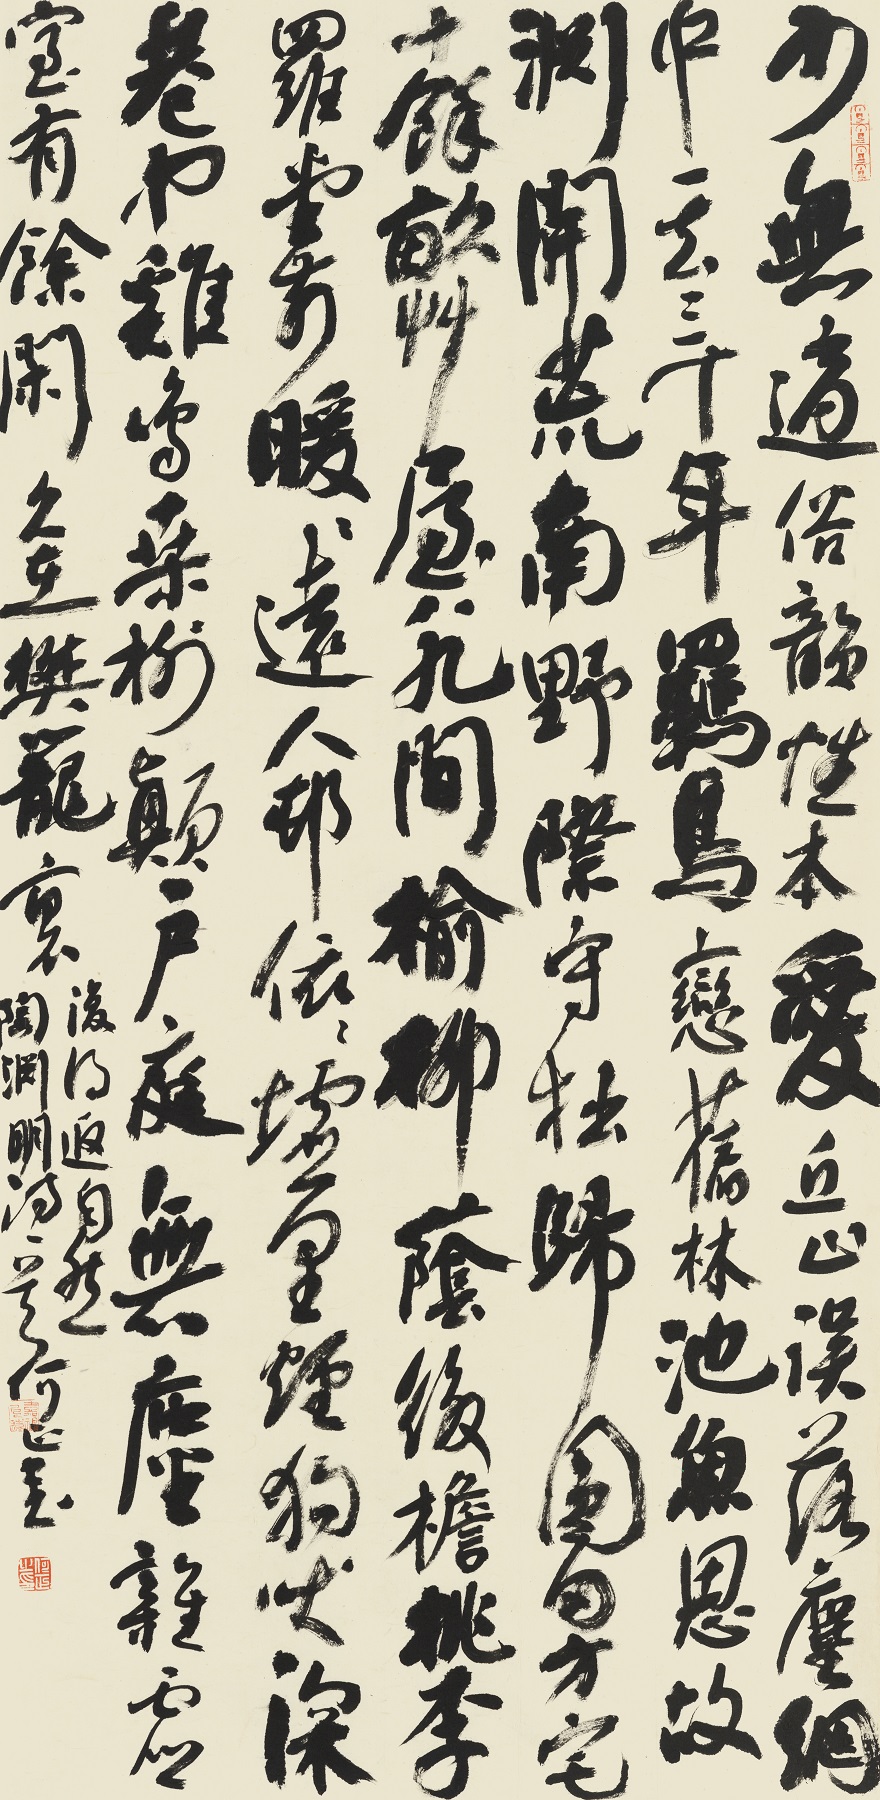 少無適俗韵性本愛丘山誤落塵網
中一去三十年羈鳥戀舊林池魚思故
淵開荒南野際守拙歸園田方宅
十餘畝艸屋八九間榆柳蔭後檐桃李
羅堂前暖〻遠人邨依〻墟里煙狗吠深
巷中雞鳴桑樹顛户庭無塵雜虛
室有餘閑久在樊籠裏
復得返自然
陶淵明詩一首何